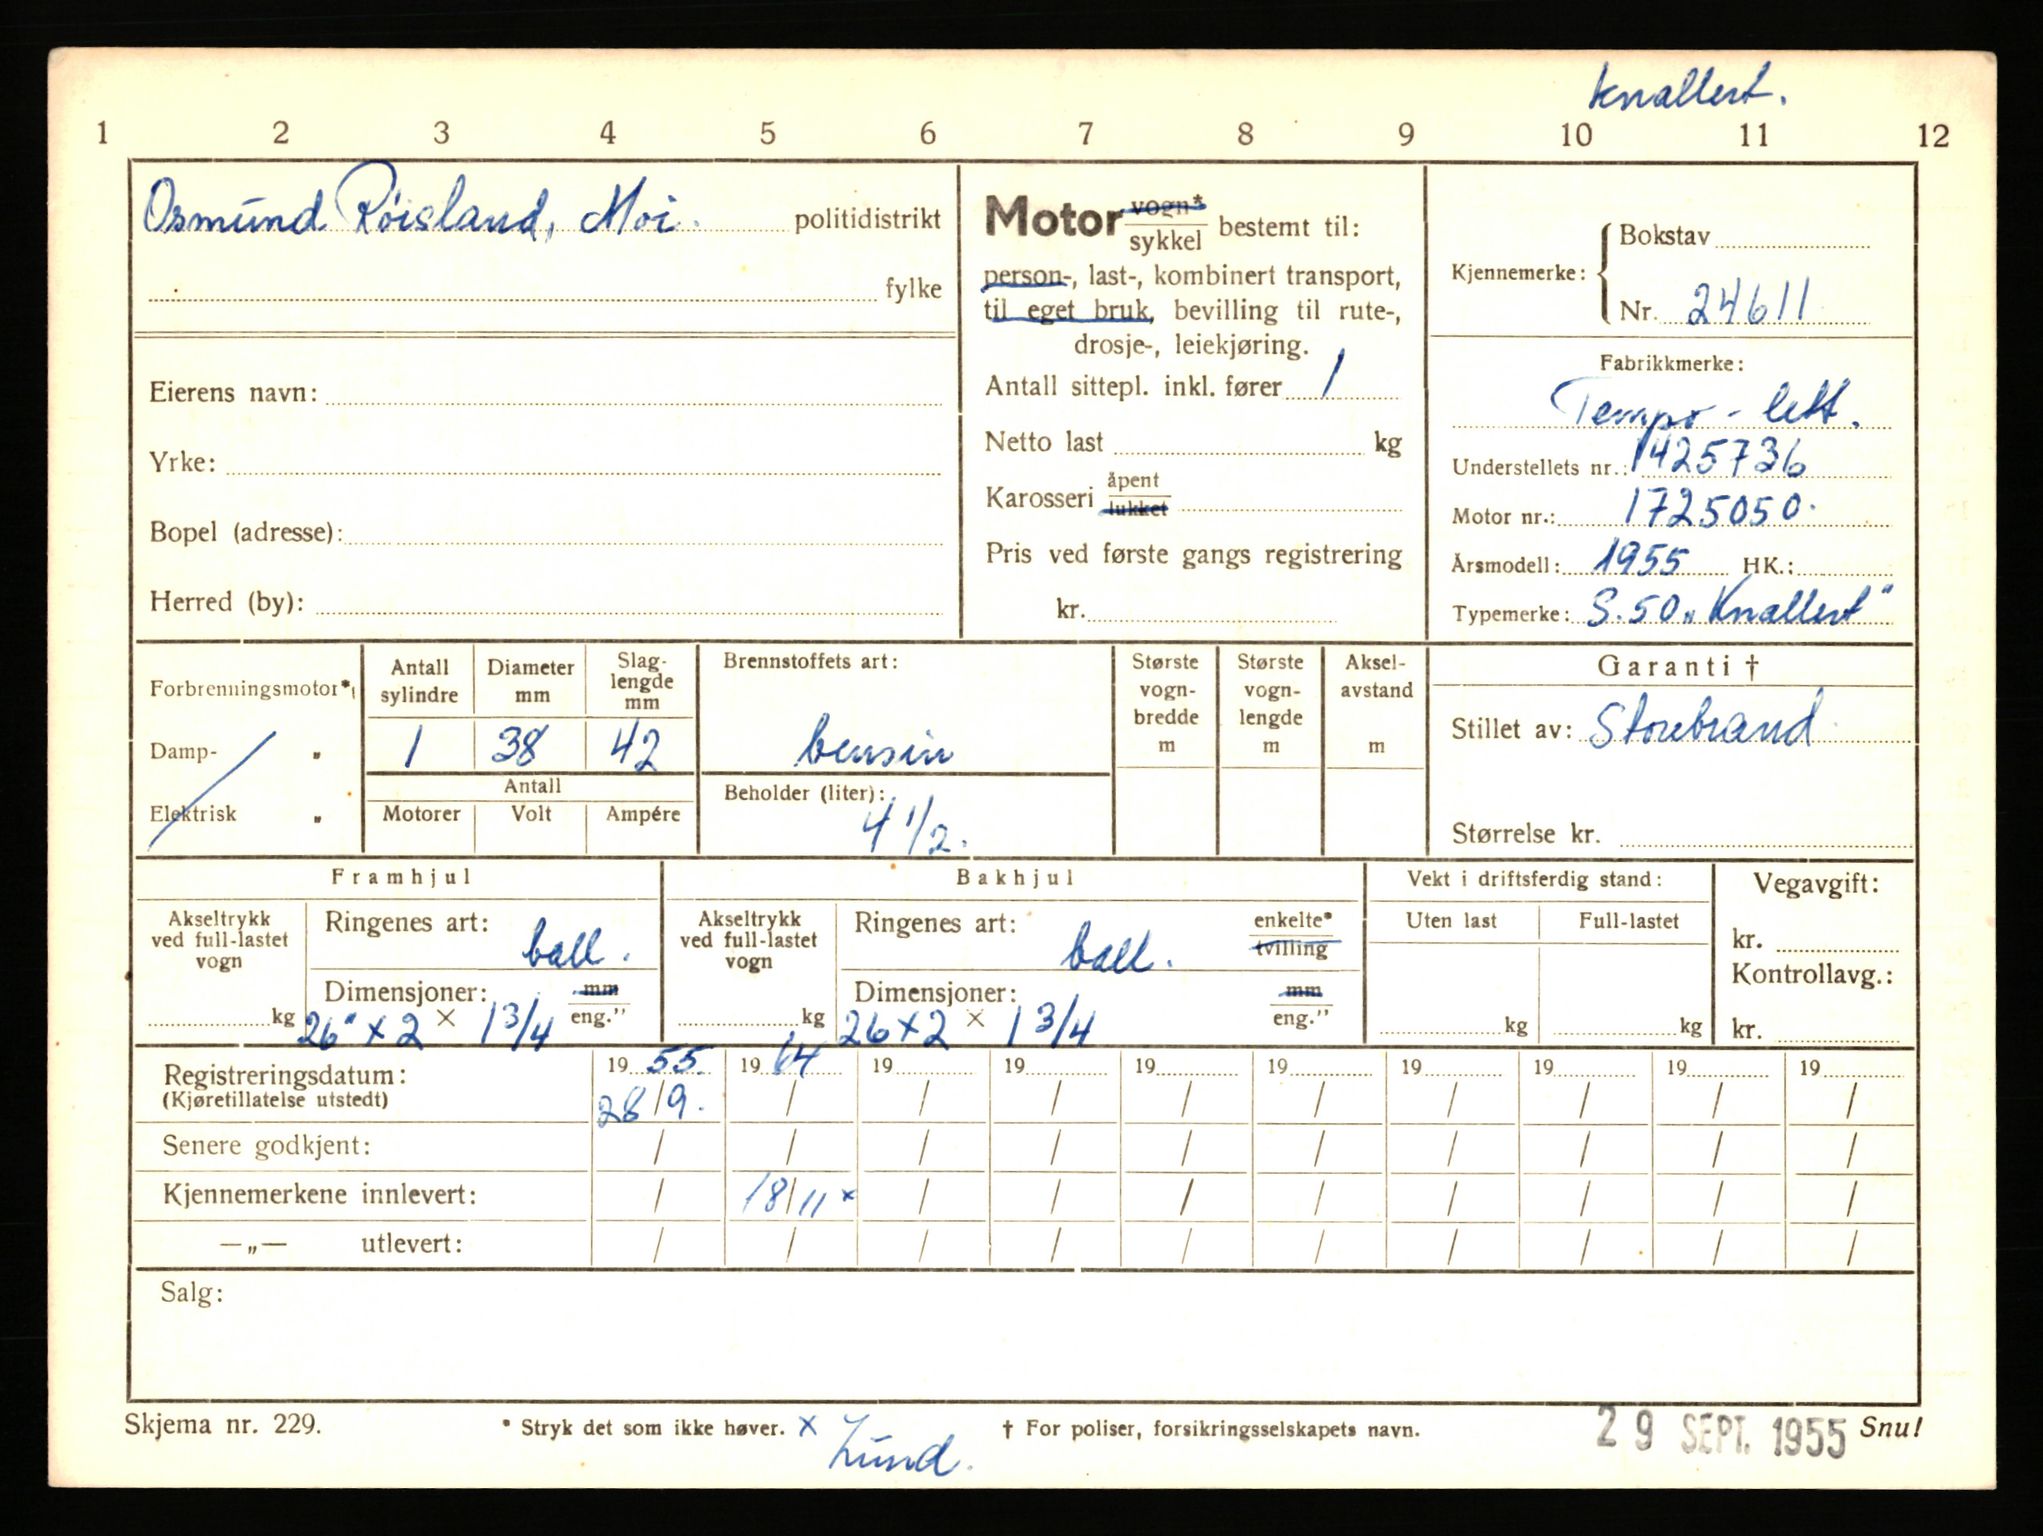 Knallert.
1 2 3 4 5 6 7 8 9 10 11 12
Osmund Røisland, Moi. politidistrikt
fylke
Eierens navn:
Yrke:
Bopel (adresse):
Herred (by):
Motor vogn* / sykkel bestemt til:
person-, last-, kombinert transport,
til eget bruk, bevilling til rute-,
drosje-, leiekjøring.
Antall sittepl. inkl. fører 1
Netto last kg
Karosseri åpent / lukket
Pris ved første gangs registrering
kr.
Kjennemerke: Bokstav
Nr. 24611
Fabrikkmerke:
Tempo - lett.
Understellets nr.: 1425736
Motor nr.: 1725050.
Årsmodell: 1955 HK.:
Typemerke: S.50 „Knallert"
Forbrenningsmotor*
Damp- „
Elektrisk „
Antall sylindre
1
Diameter mm
38
Slag-
lengde
mm
42
Antall
Motorer Volt Ampére
Brennstoffets art:
bensin
Beholder (liter):
4 1/2.
Største
vogn-
bredde
m
Største
vogn-
lengde
m
Aksel-
avstand
m
Garanti †
Stillet av: Storebrand
Størrelse kr.
Framhjul
Akseltrykk
ved full-lastet
vogn
kg
Ringenes art:
ball.
Dimensjoner: mm / eng.”
26" x 2 × 1 3/4
Bakhjul
Akseltrykk
ved full-lastet
vogn
kg
Ringenes art: enkelte* / tvilling
ball.
Dimensjoner: mm / eng.”
26 x 2 × 1 3/4
Vekt i driftsferdig stand:
Uten last Full-lastet
kg kg
Vegavgift:
kr.
Kontrollavg.:
kr.
Registreringsdatum: 19 55. 19 64 19 19 19 19 19 19 19 19
(Kjøretillatelse utstedt) 28/9. / / / / / / / / /
Senere godkjent: / / / / / / / / / /
Kjennemerkene innlevert: / 18/11 x / / / / / / / /
—„— utlevert: / / / / / / / / / /
Salg:
Skjema nr. 229. * Stryk det som ikke høver. x Lund. † For poliser, forsikringsselskapets navn. 29 SEPT. 1955 Snu!